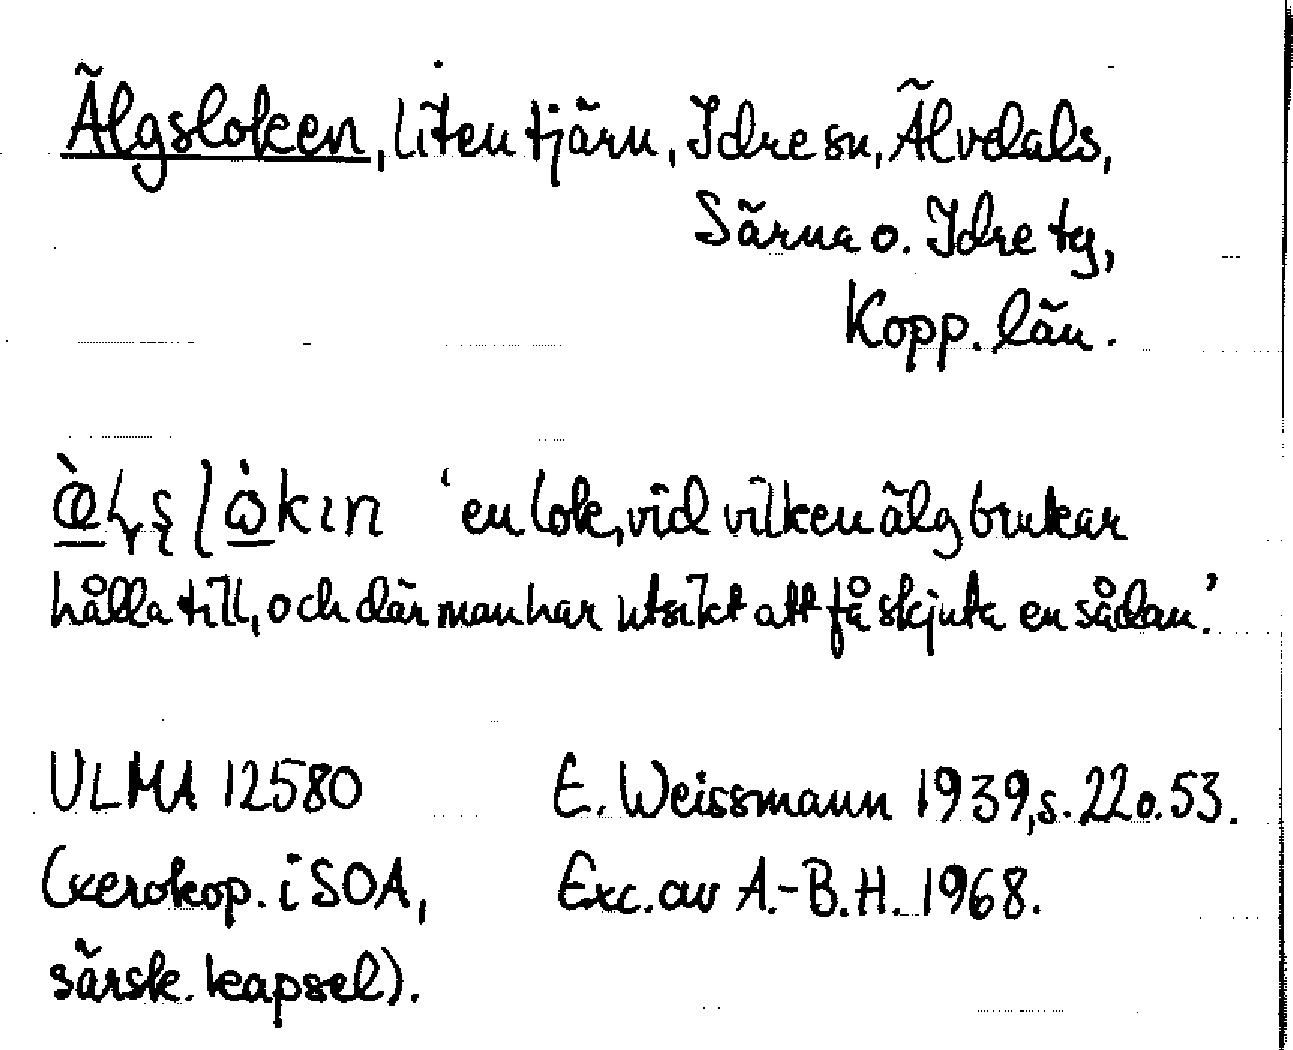 Älgsloken, liten tjärn, Idre sn, Älvdals,
Särna o. Idre tg,
Kopp. län.
'en lok, vid vilken älg brukar
hålla till, och där man har utsikt att få skjuta en sådan.'
ULMA 12580 E. Weissmann 1939, s. 22 o. 53.
(xerokop. i SOA, Exc. av A.-B.H. 1968.
särsk. kapsel).